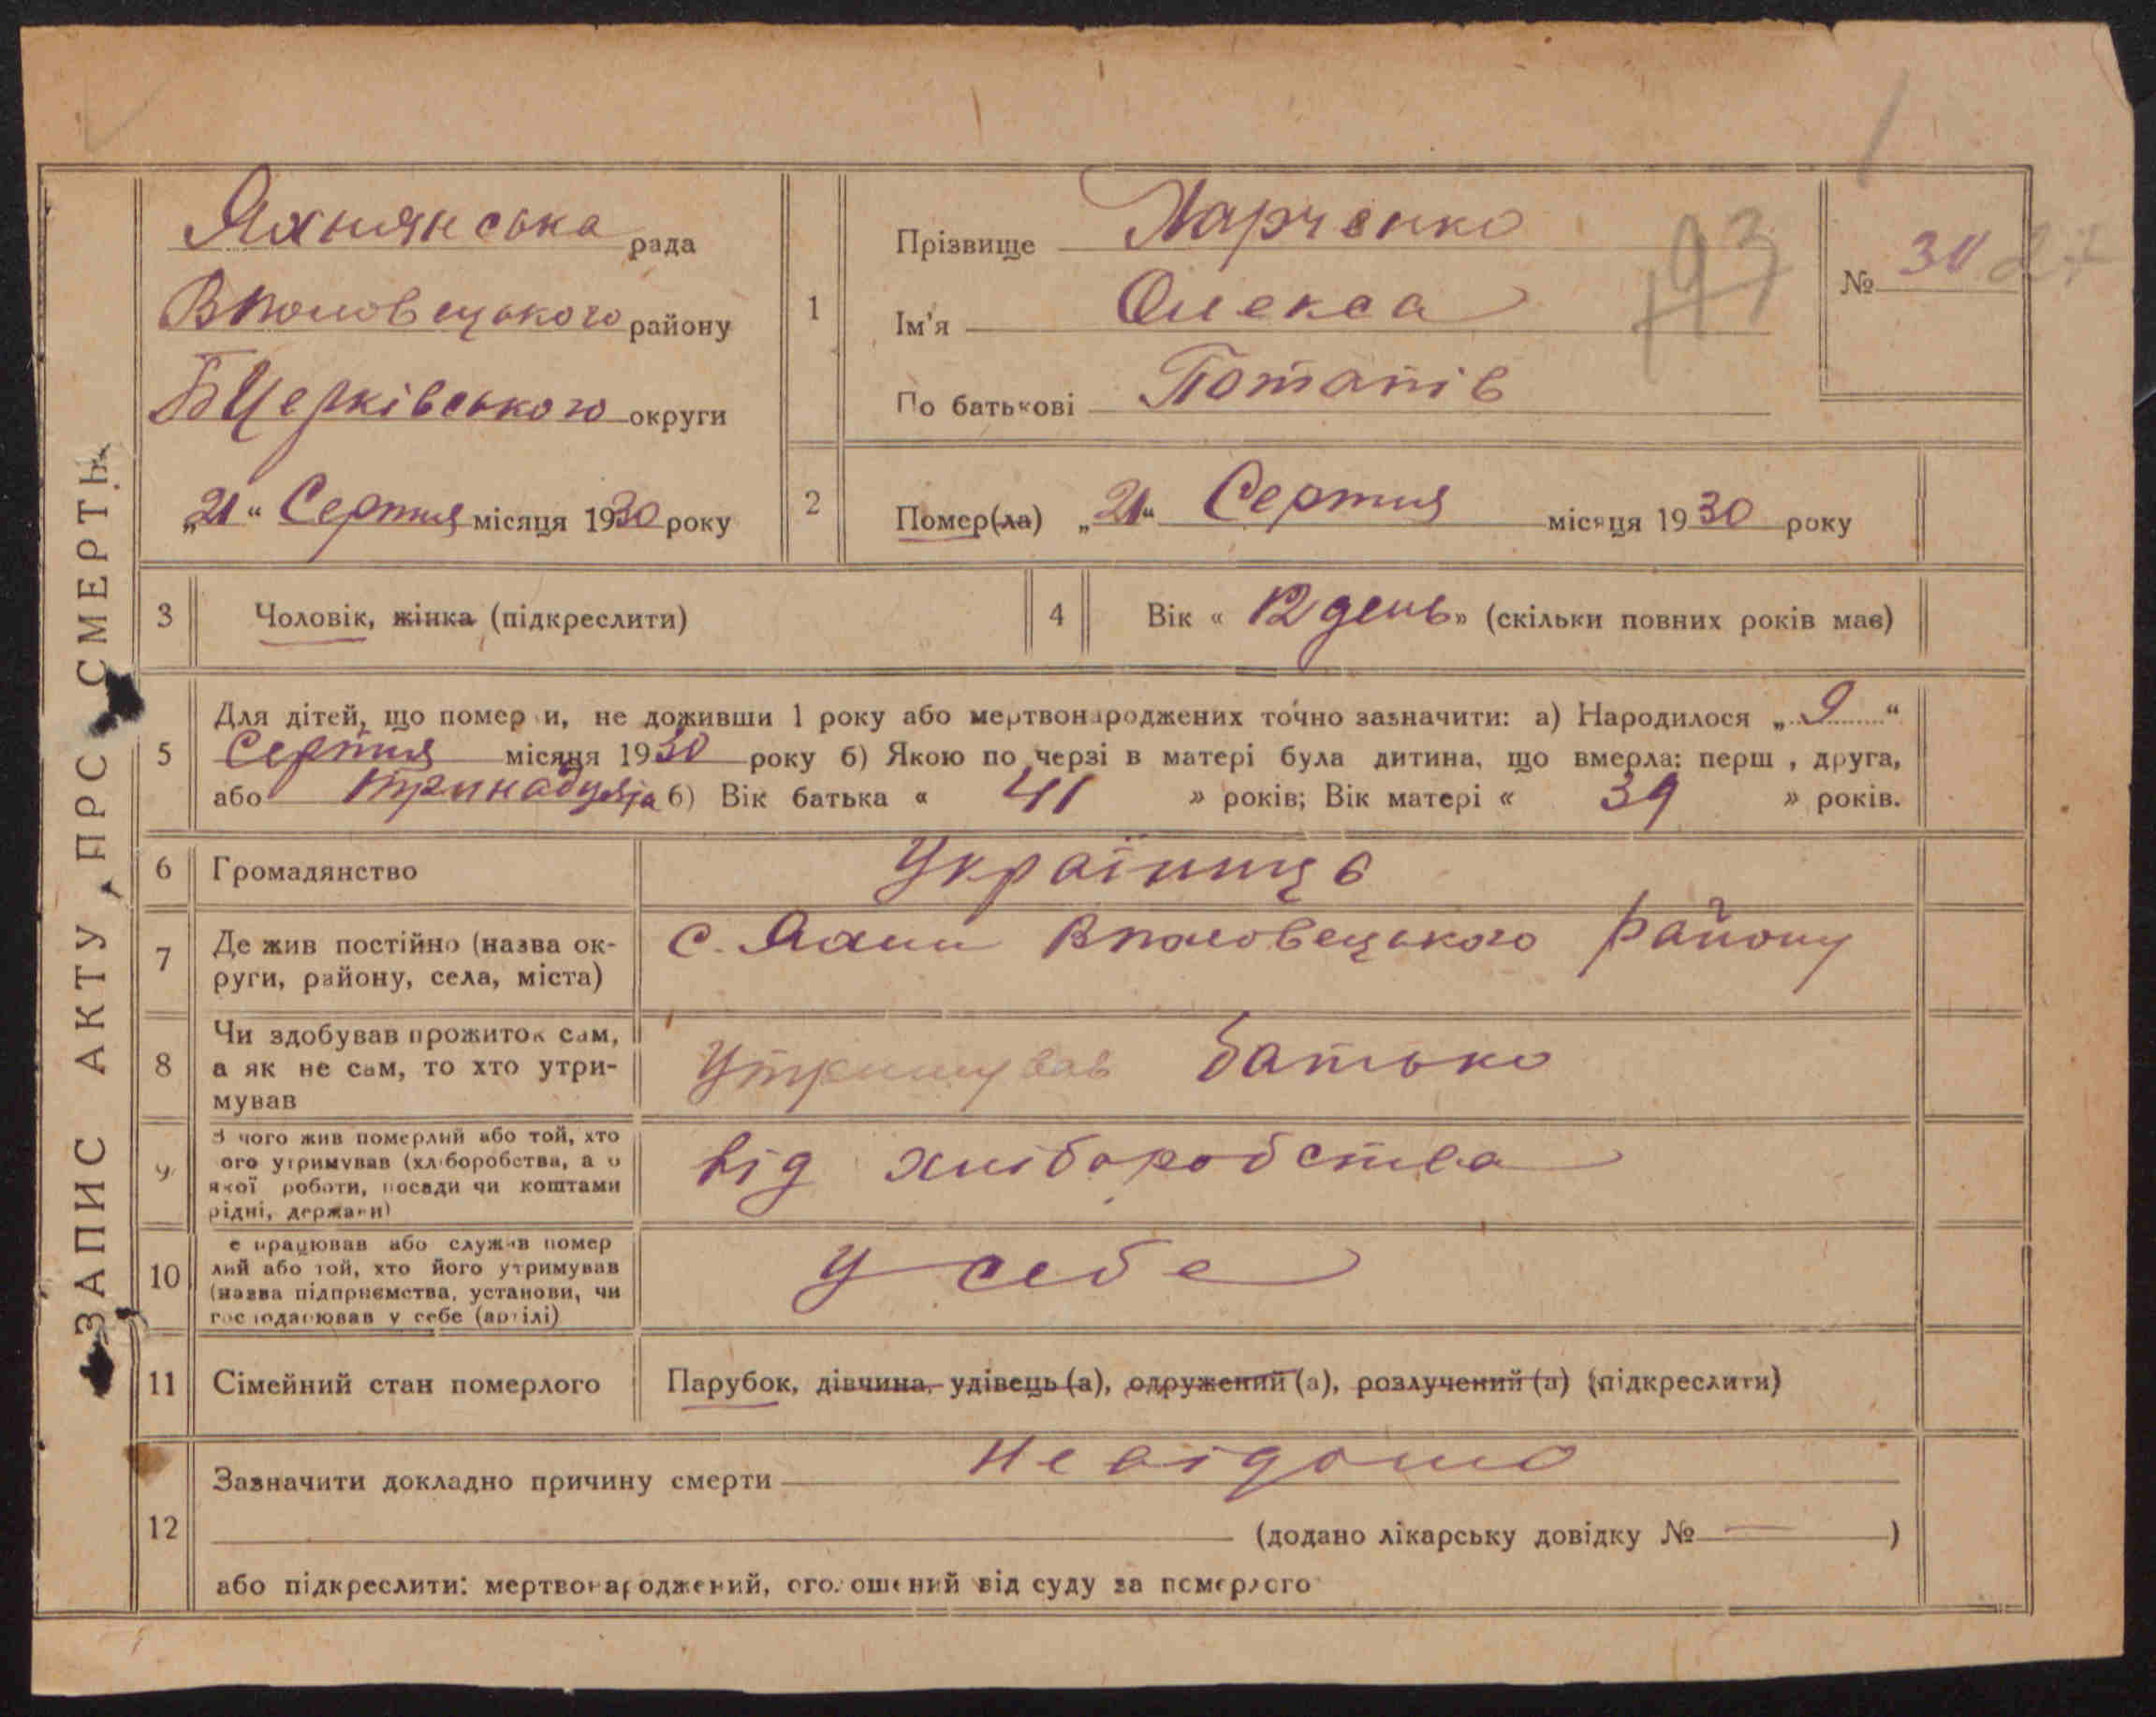 ЗАПИС АКТУ ПРО СМЕРТЬ
Яхнянська рада
ВПоловецького району
БЦерківського округи
„21“ Серпня місяця 1930 року
1
Прізвище Харченко
Ім'я Олекса
По батькові Потапів
193
№ 30
2
Помер(ла) „21“ Серпня місяця 1930 року
3 Чоловік, жінка (підкреслити)
4 Вік « 12 день» (скільки повних років має)
5 Для дітей, що померли, не доживши 1 року або мертвонароджених точно зазначити: а) Народилося „9“
Серпня місяця 1930 року б) Якою по черзі в матері була дитина, що вмерла: перш , друга,
або тринадцята б) Вік батька « 41 » років; Вік матері « 39 » років.
6 Громадянство Українців
7 Де жив постійно (назва округи, району, села, міста) с. Яхни Вполовецького району
8 Чи здобував прожиток сам,
а як не сам, то хто утри-
мував Утримував батько
9 З чого жив померлий або той, хто
ого утримував (хліборобства, а о
якої роботи, посади чи коштами
рідні, держави) від хліборобства
10 е працював або служив помер
лий або той, хто його утримував
(назва підприємства, установи, чи
господарював у себе (артілі) у себе
11 Сімейний стан померлого Парубок, дівчина, удівець (а), одружений (а), розлучений (а) (підкреслити)
12 Зазначити докладно причину смерти невідомо
(додано лікарську довідку № — )
або підкреслити: мертвонароджений, оголошений від суду за померлого